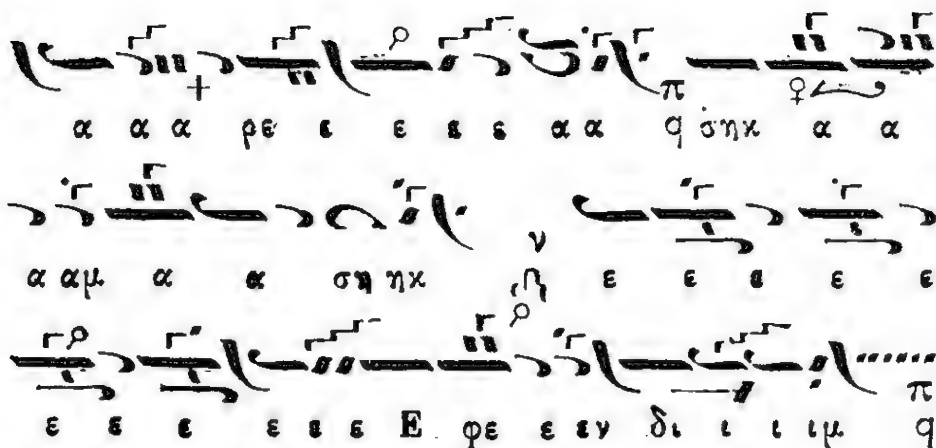 α α α ρε ε ε ε ε α α π q σηκ α α
α αμ α α ση ηκ ν ε ε ε ε ε
ε ε ε ε ε ε Ε φε ε εν δι ι ι ιμ π q